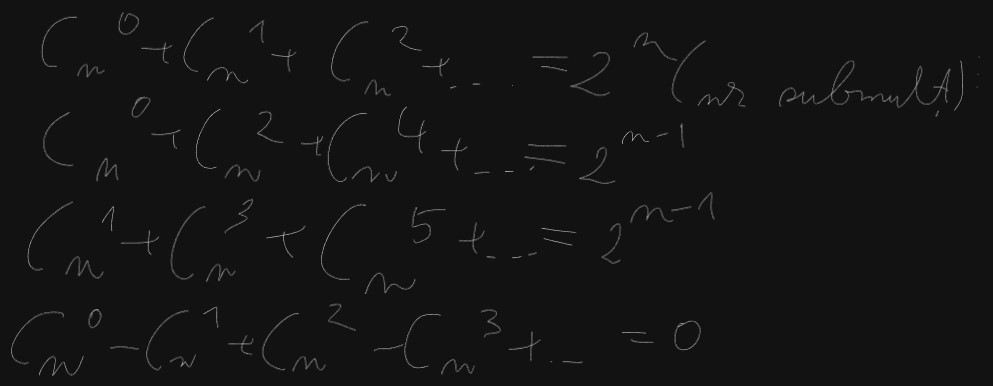 C_n^0 + C_n^1 + C_n^2 + ... = 2^n (nr submult)
C_n^0 + C_n^2 + C_n^4 + ... = 2^{n-1}
C_n^1 + C_n^3 + C_n^5 + ... = 2^{n-1}
C_n^0 - C_n^1 + C_n^2 - C_n^3 + ... = 0